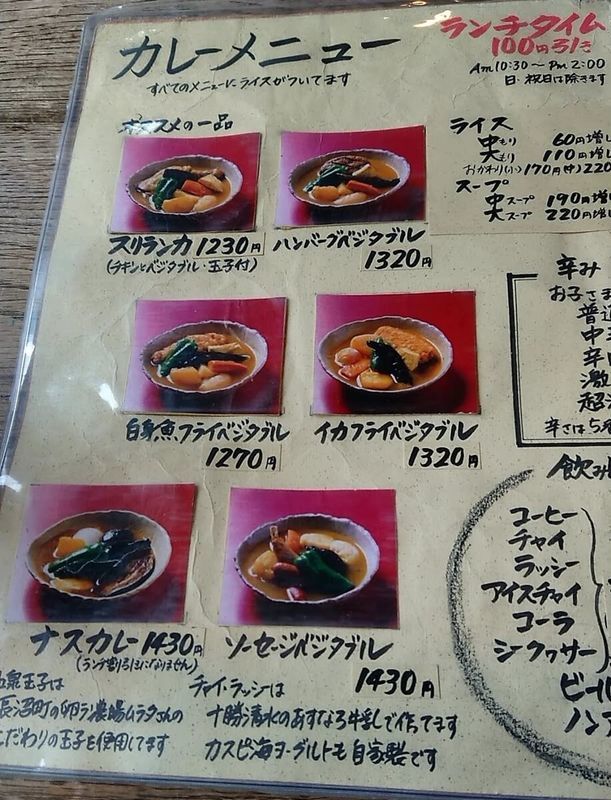 カレーメニュー
すべてのメニューにライスがついてます
ランチタイム
100円引き
Am10:30～Pm2:00
日・祝日は除きます
オススメの一品
スリランカ 1230円
(チキンとベジタブル・玉子付)
ハンバーグベジタブル
1320円
白身魚フライベジタブル
1270円
イカフライベジタブル
1320円
ナスカレー 1430円
(ランチ割引きになりません)
ソーセージベジタブル
1430円
玉子は
長沼町の卵ランド農場ムラタさんの
こだわりの玉子を使用してます
チャイ・ラッシーは
十勝清水のあすなろ牛乳で作ってます
カスピ海ヨーグルトも自家製です
ライス
中もり 60円増し
大もり 110円増し
おかわり(小) 170円 (中) 220
スープ
中スープ 190円増
大スープ 220円増
辛み
お子さま
普通
中
辛
激
超
辛さは
飲み
コーヒー
チャイ
ラッシー
アイスチャイ
コーラ
シークワサー
ビール
ノン